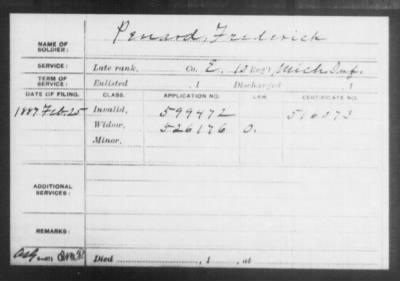 NAME OF SOLDIER: Penard, Frederick
SERVICE: Late rank, Co. E, 12 Reg't Mich Inf.
TERM OF SERVICE: Enlisted , 1 Discharged , 1
DATE OF FILING. CLASS. APPLICATION NO. LAW. CERTIFICATE NO.
1887 Feb. 25 Invalid, 599472 516073
Widow, 526176 O.
Minor,
ADDITIONAL SERVICES:
REMARKS:
Died , 1 , at